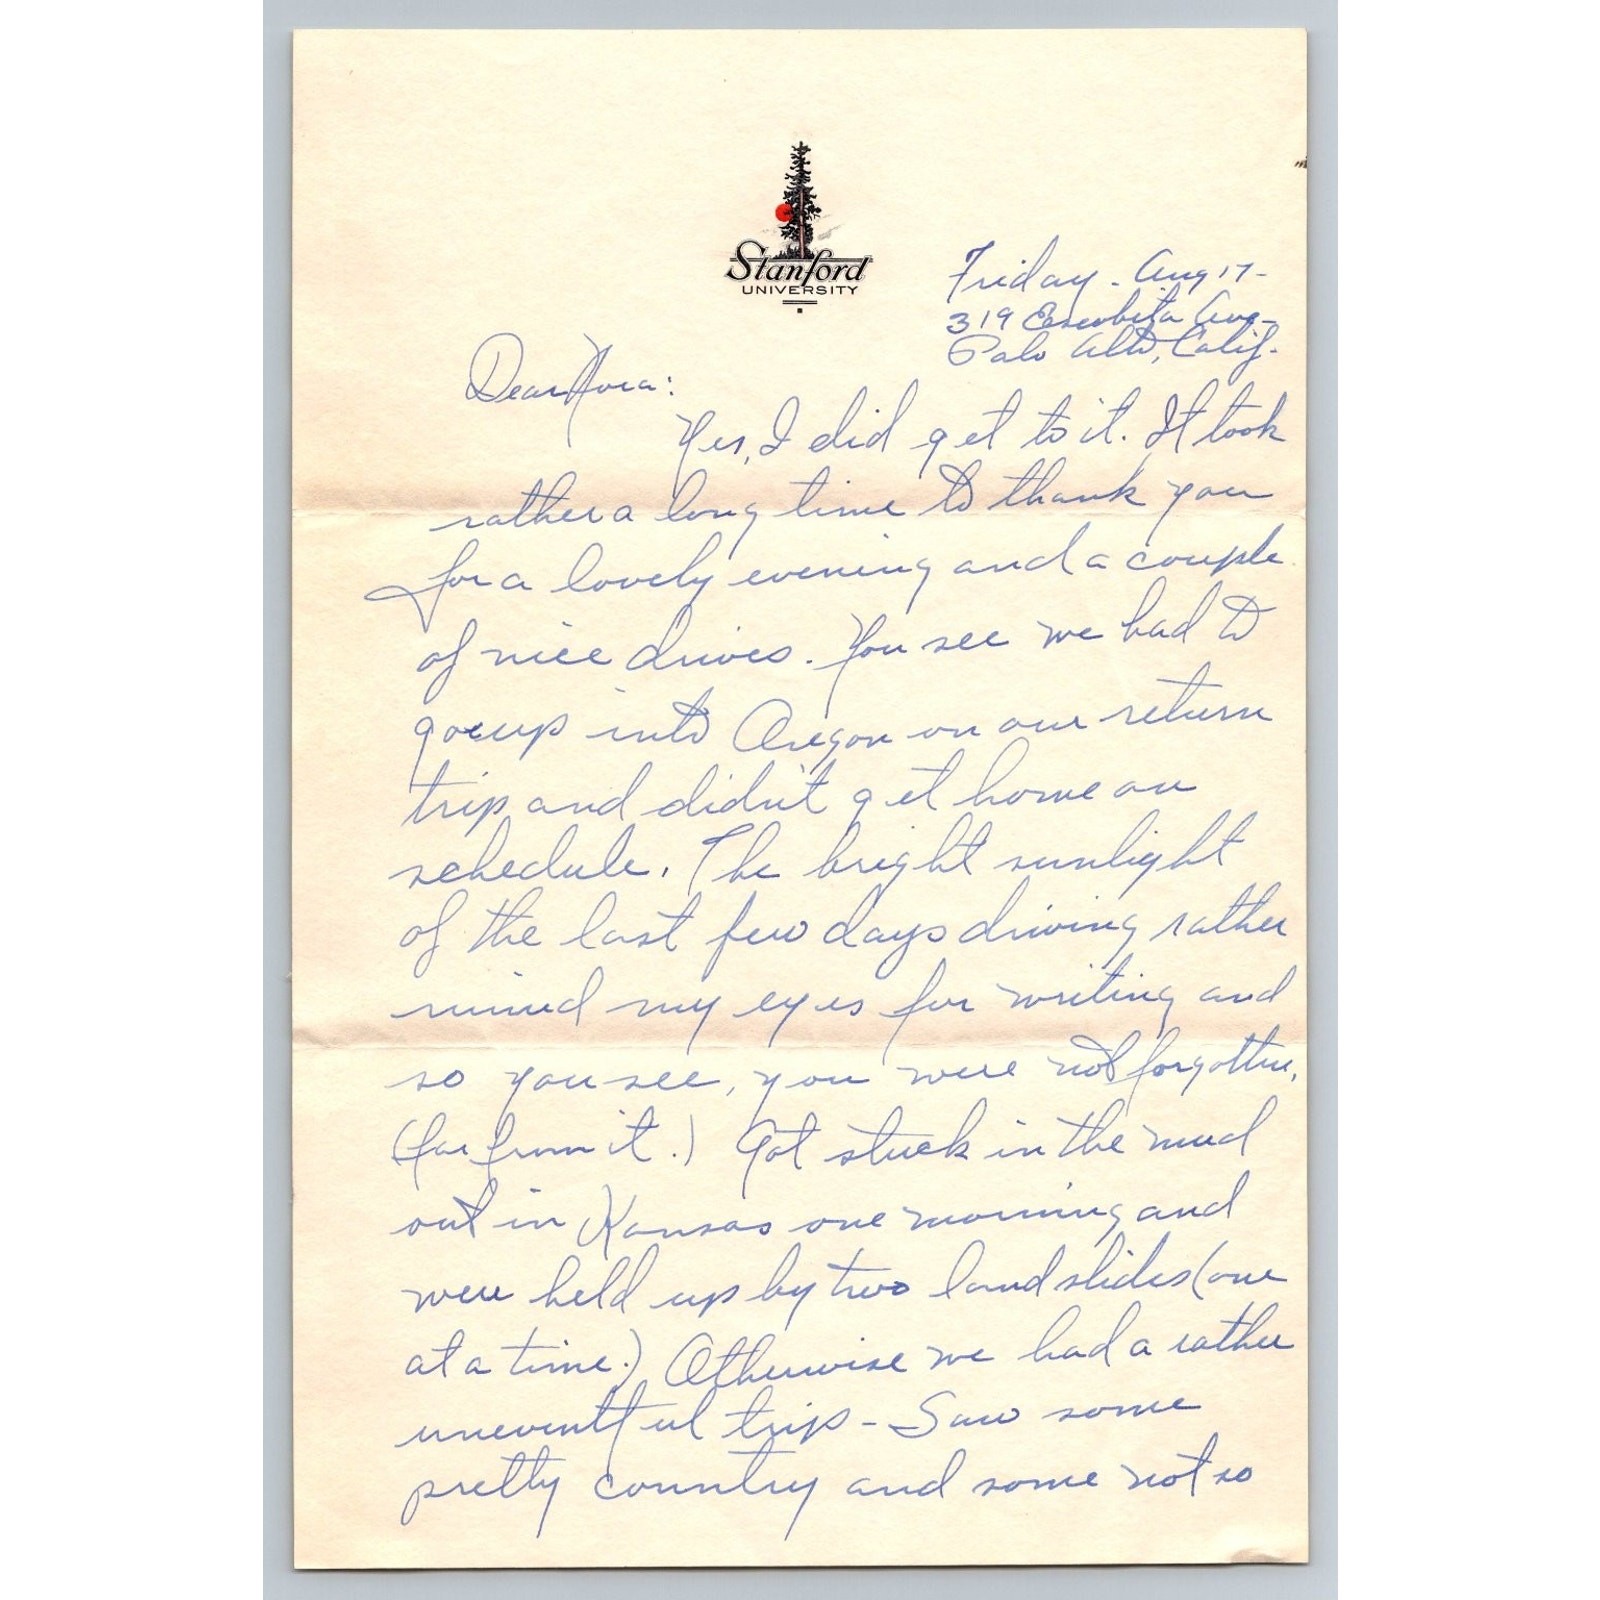 Stanford
UNIVERSITY
Friday - Aug 17 -
319 Escobita Ave -
Palo Alto, Calif.
Dear Nora:
Yes, I did get to it. It took
rather a long time to thank you
for a lovely evening and a couple
of nice drives. You see we had to
go up into Oregon on our return
trip and didn't get home on
schedule. The bright sunlight
of the last few days driving rather
ruined my eyes for writing and
so you see, you were not forgotten,
(far from it.) Got stuck in the mud
out in Kansas one morning and
were held up by two landslides (one
at a time.) Otherwise we had a rather
uneventful trip - Saw some
pretty country and some not so